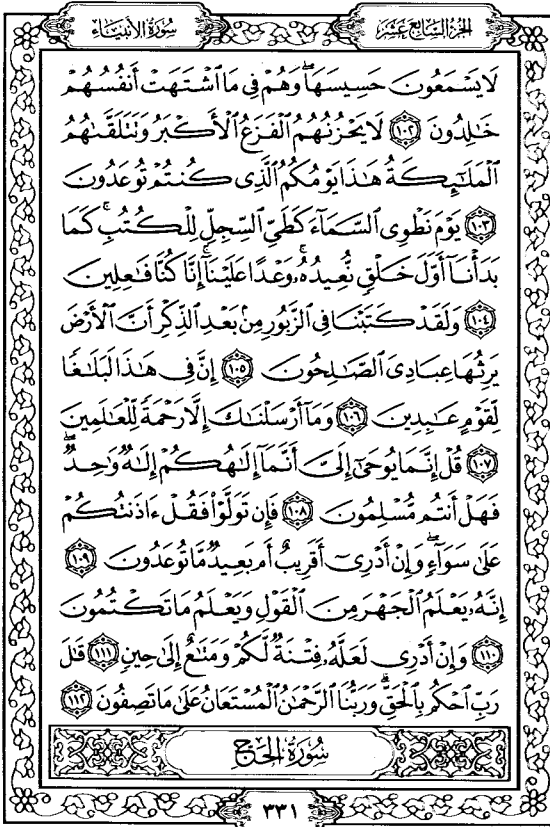 الجزء السابع عشر
سورة الأنبياء
لَا يَسْمَعُونَ حَسِيسَهَا ۖ وَهُمْ فِى مَا ٱشْتَهَتْ أَنفُسُهُمْ
خَٰلِدُونَ ١٠٢ لَا يَحْزُنُهُمُ ٱلْفَزَعُ ٱلْأَكْبَرُ وَتَتَلَقَّىٰهُمُ
ٱلْمَلَٰٓئِكَةُ هَٰذَا يَوْمُكُمُ ٱلَّذِى كُنتُمْ تُوعَدُونَ
١٠٣ يَوْمَ نَطْوِى ٱلسَّمَآءَ كَطَىِّ ٱلسِّجِلِّ لِلْكُتُبِ ۚ كَمَا
بَدَأْنَآ أَوَّلَ خَلْقٍ نُّعِيدُهُۥ ۚ وَعْدًا عَلَيْنَآ ۚ إِنَّا كُنَّا فَٰعِلِينَ
١٠٤ وَلَقَدْ كَتَبْنَا فِى ٱلزَّبُورِ مِنۢ بَعْدِ ٱلذِّكْرِ أَنَّ ٱلْأَرْضَ
يَرِثُهَا عِبَادِىَ ٱلصَّٰلِحُونَ ١٠٥ إِنَّ فِى هَٰذَا لَبَلَٰغًا
لِّقَوْمٍ عَٰبِدِينَ ١٠٦ وَمَآ أَرْسَلْنَٰكَ إِلَّا رَحْمَةً لِّلْعَٰلَمِينَ
١٠٧ قُلْ إِنَّمَا يُوحَىٰٓ إِلَىَّ أَنَّمَآ إِلَٰهُكُمْ إِلَٰهٌ وَٰحِدٌ ۖ
فَهَلْ أَنتُم مُّسْلِمُونَ ١٠٨ فَإِن تَوَلَّوْا۟ فَقُلْ ءَاذَنتُكُمْ
عَلَىٰ سَوَآءٍ ۖ وَإِنْ أَدْرِىٓ أَقَرِيبٌ أَم بَعِيدٌ مَّا تُوعَدُونَ ١٠٩
إِنَّهُۥ يَعْلَمُ ٱلْجَهْرَ مِنَ ٱلْقَوْلِ وَيَعْلَمُ مَا تَكْتُمُونَ
١١٠ وَإِنْ أَدْرِى لَعَلَّهُۥ فِتْنَةٌ لَّكُمْ وَمَتَٰعٌ إِلَىٰ حِينٍ ١١١ قَٰلَ
رَبِّ ٱحْكُم بِٱلْحَقِّ ۗ وَرَبُّنَا ٱلرَّحْمَٰنُ ٱلْمُسْتَعَانُ عَلَىٰ مَا تَصِفُونَ ١١٢
سُورَةُ الحَجّ
٣٣١